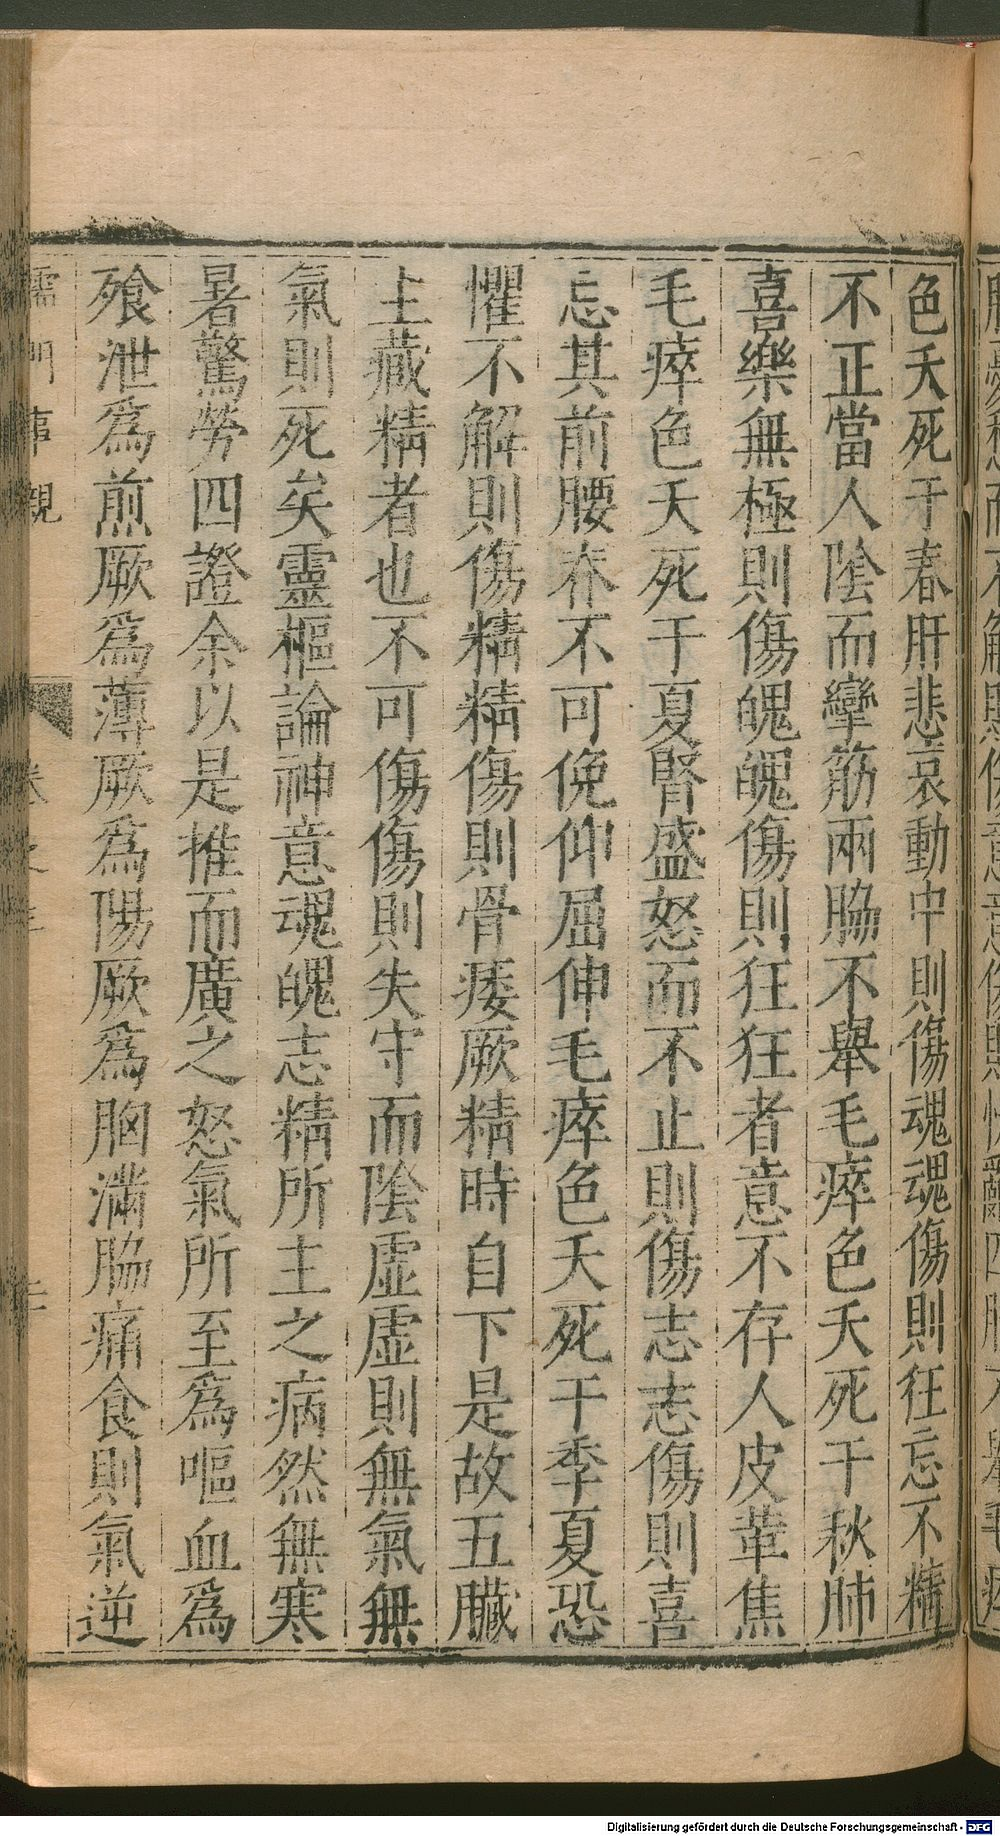 色夭死于春肝悲哀動中則傷魂魂傷則狂忘不精
不正當人陰而攣筋兩脇不舉毛瘁色夭死于秋肺
喜樂無極則傷魄魄傷則狂狂者意不存人皮革焦
毛瘁色夭死于夏腎盛怒而不止則傷志志傷則喜
忘其前腰脊不可俛仰屈伸毛瘁色夭死于季夏恐
懼不解則傷精精傷則骨痿厥精時自下是故五臟
主藏精者也不可傷傷則失守而陰虛虛則無氣無
氣則死矣靈樞論神意魂魄志精所主之病然無寒
暑驚勞四證余以是推而廣之怒氣所至為嘔血為
飱泄為煎厥為薄厥為陽厥為胸滿脇痛食則氣逆
儒門事親
Digitalisierung gefördert durch die Deutsche Forschungsgemeinschaft - DFG